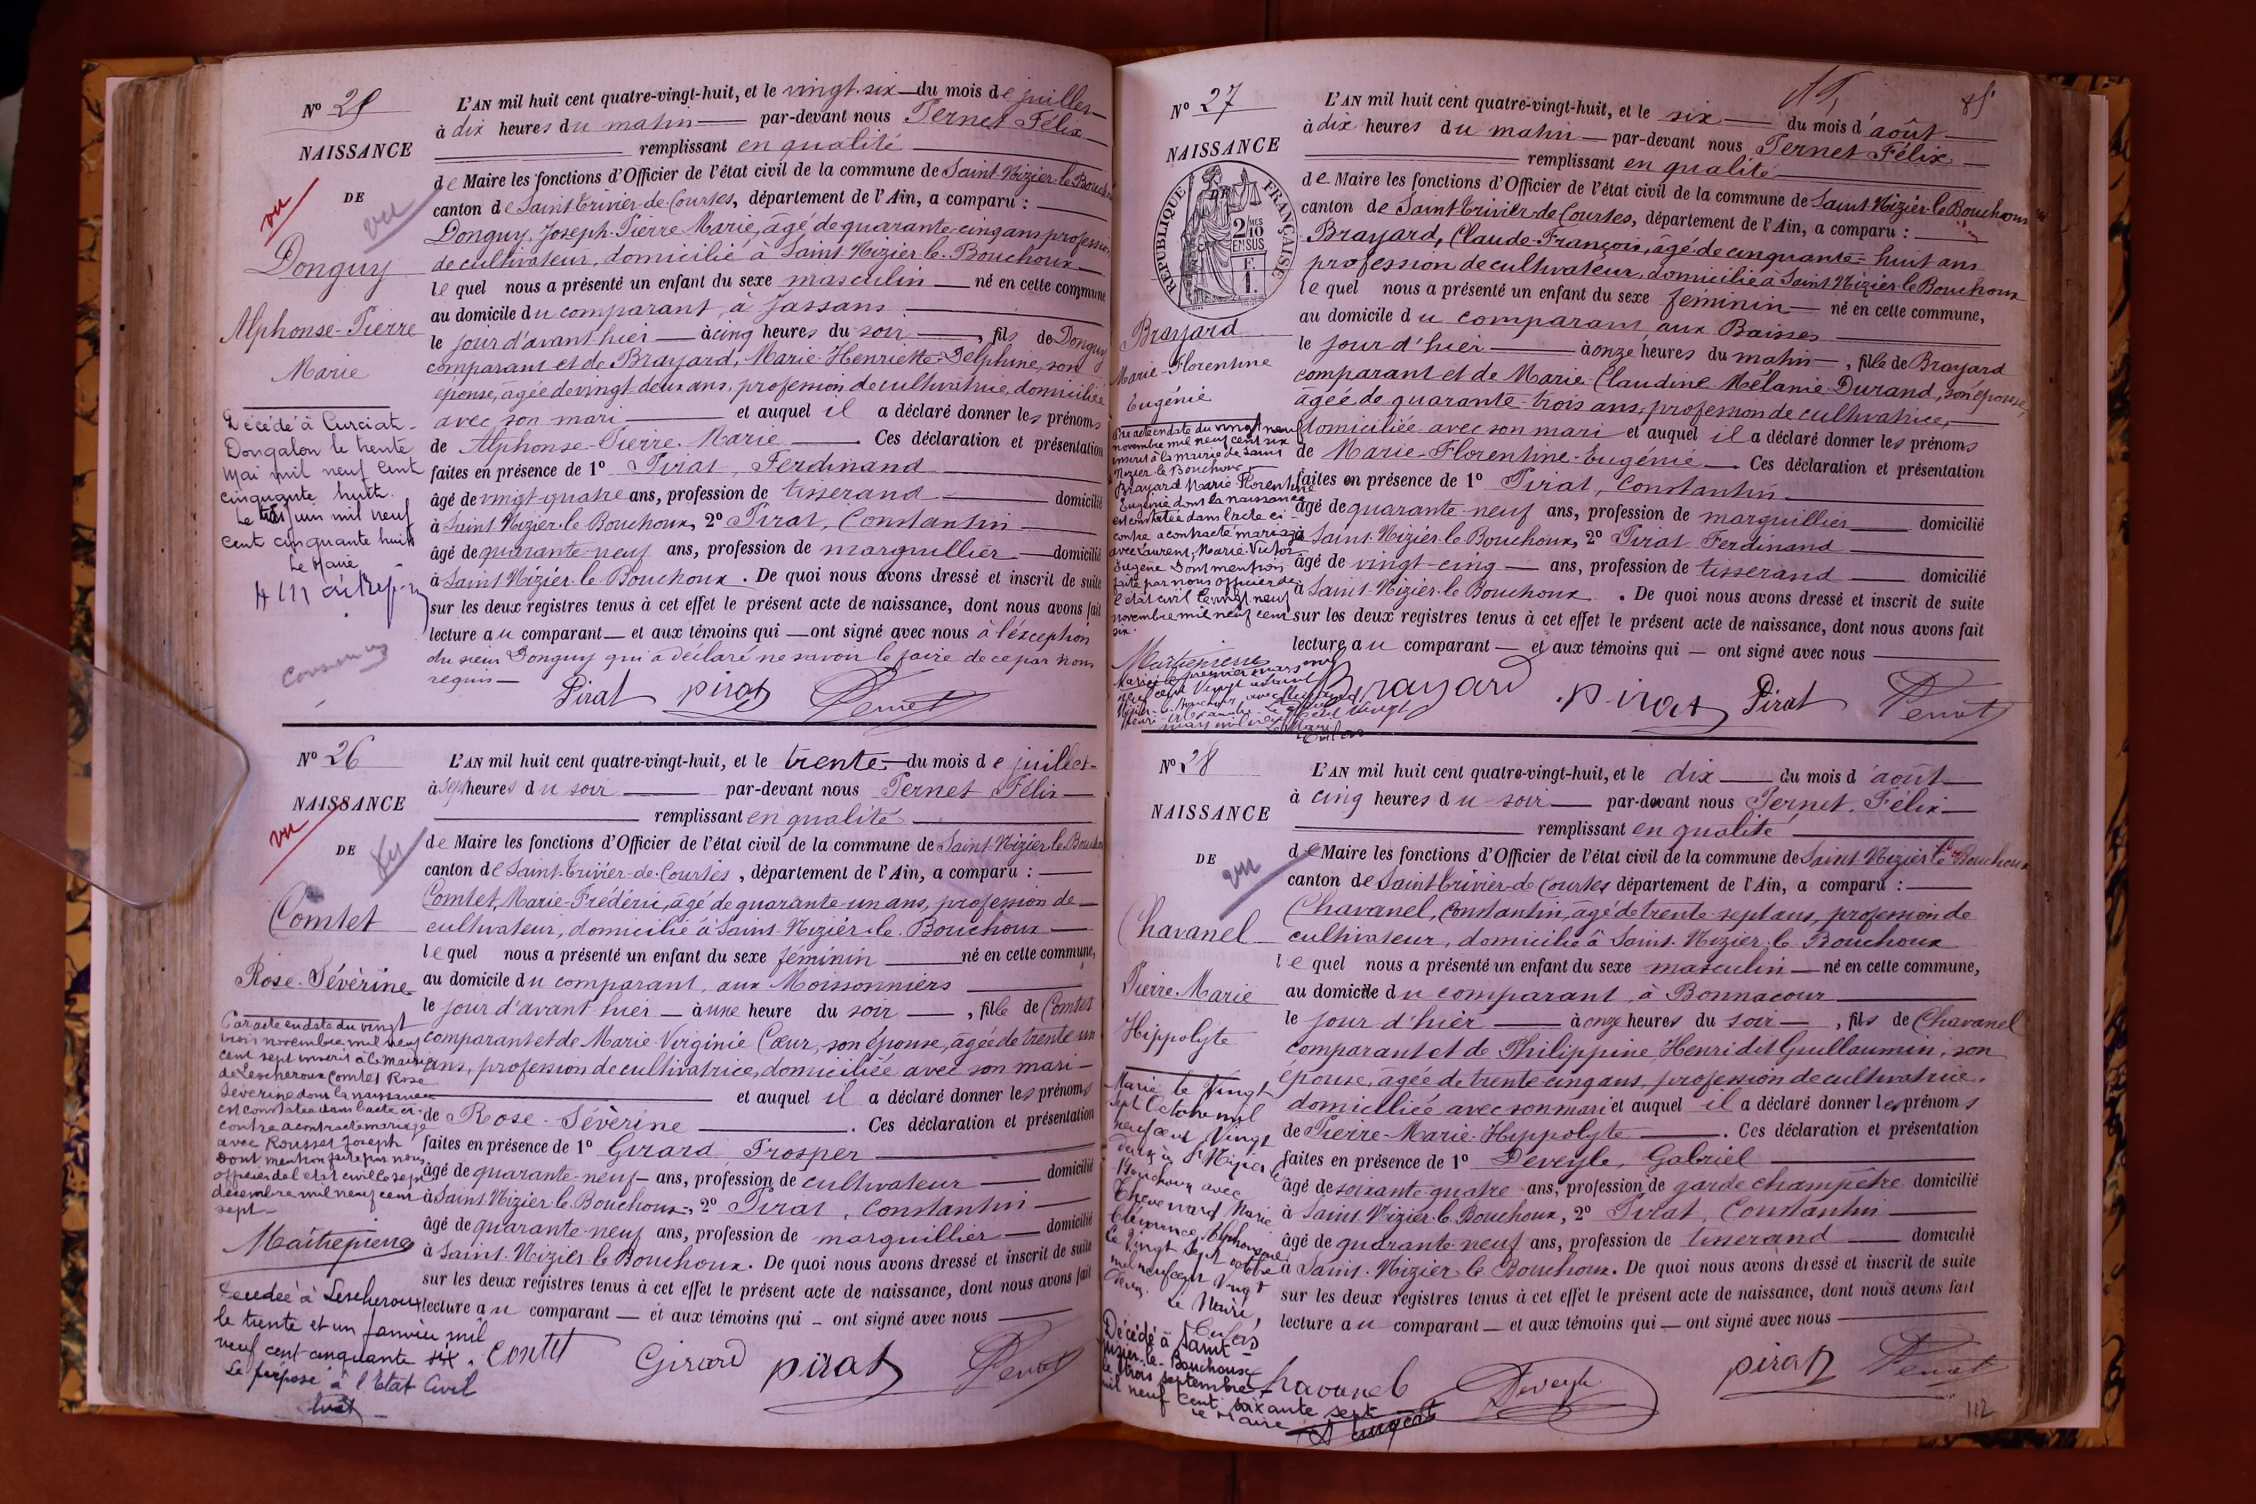 N° 25
NAISSANCE
DE
vu
vu
Donguy
Alphonse-Pierre
Marie
Décédé à Curciat-
Dongalon le trente
mai mil neuf cent
cinquante huit.
Le trois juin mil neuf
cent cinquante huit
Le Maire
L'AN mil huit cent quatre-vingt-huit, et le vingt-six du mois de juillet
à dix heures du matin par-devant nous Pernet Félix
remplissant en qualité
de Maire les fonctions d'Officier de l'état civil de la commune de Saint-Nizier-le-Bouchoux
canton de Saint-Trivier-de-Courtes, département de l'Ain, a comparu :
Donguy, Joseph-Pierre-Marie, âgé de quarante-cinq ans, profession
de cultivateur, domicilié à Saint-Nizier-le-Bouchoux
lequel nous a présenté un enfant du sexe masculin né en cette commune
au domicile du comparant, à Jassans
le jour d'avant-hier à cinq heures du soir, fils de Donguy
comparant et de Brayard, Marie-Henriette-Delphine, son
épouse, âgée de vingt deux ans, profession de cultivatrice, domiciliée
avec son mari et auquel il a déclaré donner les prénoms
de Alphonse-Pierre-Marie. Ces déclaration et présentation
faites en présence de 1° Pirat, Ferdinand
âgé de vingt-quatre ans, profession de tisserand domicilié
à Saint-Nizier-le-Bouchoux, 2° Pirat, Constantin
âgé de quarante-neuf ans, profession de marguillier domicilié
à Saint-Nizier-le-Bouchoux. De quoi nous avons dressé et inscrit de suite
sur les deux registres tenus à cet effet le présent acte de naissance, dont nous avons fait
lecture au comparant et aux témoins qui ont signé avec nous à l'exception
du sieur Donguy qui a déclaré ne savoir le faire de ce par nous
requis
Pirat pirat Pernet
N° 26
NAISSANCE
DE
vu
vu
Comtet
Rose-Sévérine
Par acte en date du vingt
trois novembre mil neuf
cent sept inscrit à la mairie
de Lescheroux Comtet Rose
Séverine dont la naissance
est constatée dans l'acte ci-
contre a contracté mariage
avec Rousset Joseph
Dont mention faite par nous
officier de l'état civil le sept
décembre mil neuf cent
sept
Maitrepierre
Décédée à Lescheroux
le trente et un janvier mil
neuf cent cinquante six.
Le préposé à l'Etat Civil
L'AN mil huit cent quatre-vingt-huit, et le trente du mois de juillet
à sept heures du soir par-devant nous Pernet Félix
remplissant en qualité
de Maire les fonctions d'Officier de l'état civil de la commune de Saint-Nizier-le-Bouchoux
canton de Saint-Trivier-de-Courtes, département de l'Ain, a comparu :
Comtet, Marie-Frédéric, âgé de quarante-un ans, profession de
cultivateur, domicilié à Saint-Nizier-le-Bouchoux
lequel nous a présenté un enfant du sexe féminin né en cette commune,
au domicile du comparant, aux Moissonniers
le jour d'avant-hier à une heure du soir, fille de Comtet
comparant et de Marie-Virginie Cœur, son épouse, âgée de trente-un
ans, profession de cultivatrice, domiciliée avec son mari
et auquel il a déclaré donner les prénoms
de Rose-Sévérine. Ces déclaration et présentation
faites en présence de 1° Girard Prosper
âgé de quarante-neuf ans, profession de cultivateur domicilié
à Saint-Nizier-le-Bouchoux, 2° Pirat, Constantin
âgé de quarante-neuf ans, profession de marguillier domicilié
à Saint-Nizier-le-Bouchoux. De quoi nous avons dressé et inscrit de suite
sur les deux registres tenus à cet effet le présent acte de naissance, dont nous avons fait
lecture au comparant et aux témoins qui ont signé avec nous
Comtet Girard pirat Pernet
N° 27
NAISSANCE
RÉPUBLIQUE FRANÇAISE
Brayard
Marie-Florentine
Eugénie
Par acte en date du vingt neuf
novembre mil neuf cent six
inscrit à la mairie de Saint
Nizier le Bouchoux
Brayard Marie Florentine
Eugénie dont la naissance
est constatée dans l'acte ci-
contre a contracté mariage
avec Laurent, Marie-Victor
Eugène Dont mention
faite par nous officier de
l'état civil le vingt neuf
novembre mil neuf cent
six.
Maitrepierre
L'AN mil huit cent quatre-vingt-huit, et le six du mois d'août
à dix heures du matin par-devant nous Pernet Félix
remplissant en qualité
de Maire les fonctions d'Officier de l'état civil de la commune de Saint-Nizier-le-Bouchoux
canton de Saint-Trivier-de-Courtes, département de l'Ain, a comparu :
Brayard, Claude-François, âgé de cinquante-huit ans
profession de cultivateur, domicilié à Saint-Nizier-le-Bouchoux
lequel nous a présenté un enfant du sexe féminin né en cette commune,
au domicile du comparant aux Baisses
le jour d'hier à onze heures du matin, fille de Brayard
comparant et de Marie-Claudine-Mélanie Durand, son épouse,
âgée de quarante-trois ans, profession de cultivatrice,
domiciliée avec son mari et auquel il a déclaré donner les prénoms
de Marie-Florentine-Eugénie. Ces déclaration et présentation
faites en présence de 1° Pirat, Constantin
âgé de quarante-neuf ans, profession de marguillier domicilié
à Saint-Nizier-le-Bouchoux, 2° Pirat Ferdinand
âgé de vingt-cinq ans, profession de tisserand domicilié
à Saint-Nizier-le-Bouchoux. De quoi nous avons dressé et inscrit de suite
sur les deux registres tenus à cet effet le présent acte de naissance, dont nous avons fait
lecture au comparant et aux témoins qui ont signé avec nous
Brayard pirat Pirat Pernet
N° 28
NAISSANCE
DE
vu
Chavanel
Pierre-Marie
Hippolyte
Marié le vingt
sept Octobre mil
neuf cent vingt
deux à St Nizier le
Bouchoux avec
Thevenard Marie
Clémence Alphonsine
Le vingt sept octobre
mil neuf cent vingt
deux.
Le Maire,
Décédé à Saint-
Nizier-le-Bouchoux
le trois septembre
mil neuf cent soixante sept
Le Maire
L'AN mil huit cent quatre-vingt-huit, et le dix du mois d'août
à cinq heures du soir par-devant nous Pernet, Félix
remplissant en qualité
de Maire les fonctions d'Officier de l'état civil de la commune de Saint-Nizier-le-Bouchoux
canton de Saint-Trivier-de-Courtes département de l'Ain, a comparu :
Chavanel, Constantin, âgé de trente-sept ans, profession de
cultivateur, domicilié à Saint-Nizier-le-Bouchoux
lequel nous a présenté un enfant du sexe masculin né en cette commune,
au domicile du comparant, à Bonnacour
le jour d'hier à onze heures du soir, fils de Chavanel
comparant et de Philippine Henri dit Guillaumin, son
épouse, âgée de trente cinq ans, profession de cultivatrice,
domiciliée avec son mari et auquel il a déclaré donner les prénoms
de Pierre-Marie-Hippolyte. Ces déclaration et présentation
faites en présence de 1° Deveyle, Gabriel
âgé de soixante-quatre ans, profession de garde champêtre domicilié
à Saint-Nizier-le-Bouchoux, 2° Pirat, Constantin
âgé de quarante-neuf ans, profession de tisserand domicilié
à Saint-Nizier-le-Bouchoux. De quoi nous avons dressé et inscrit de suite
sur les deux registres tenus à cet effet le présent acte de naissance, dont nous avons fait
lecture au comparant et aux témoins qui ont signé avec nous
Chavanel Deveyle pirat Pernet
112